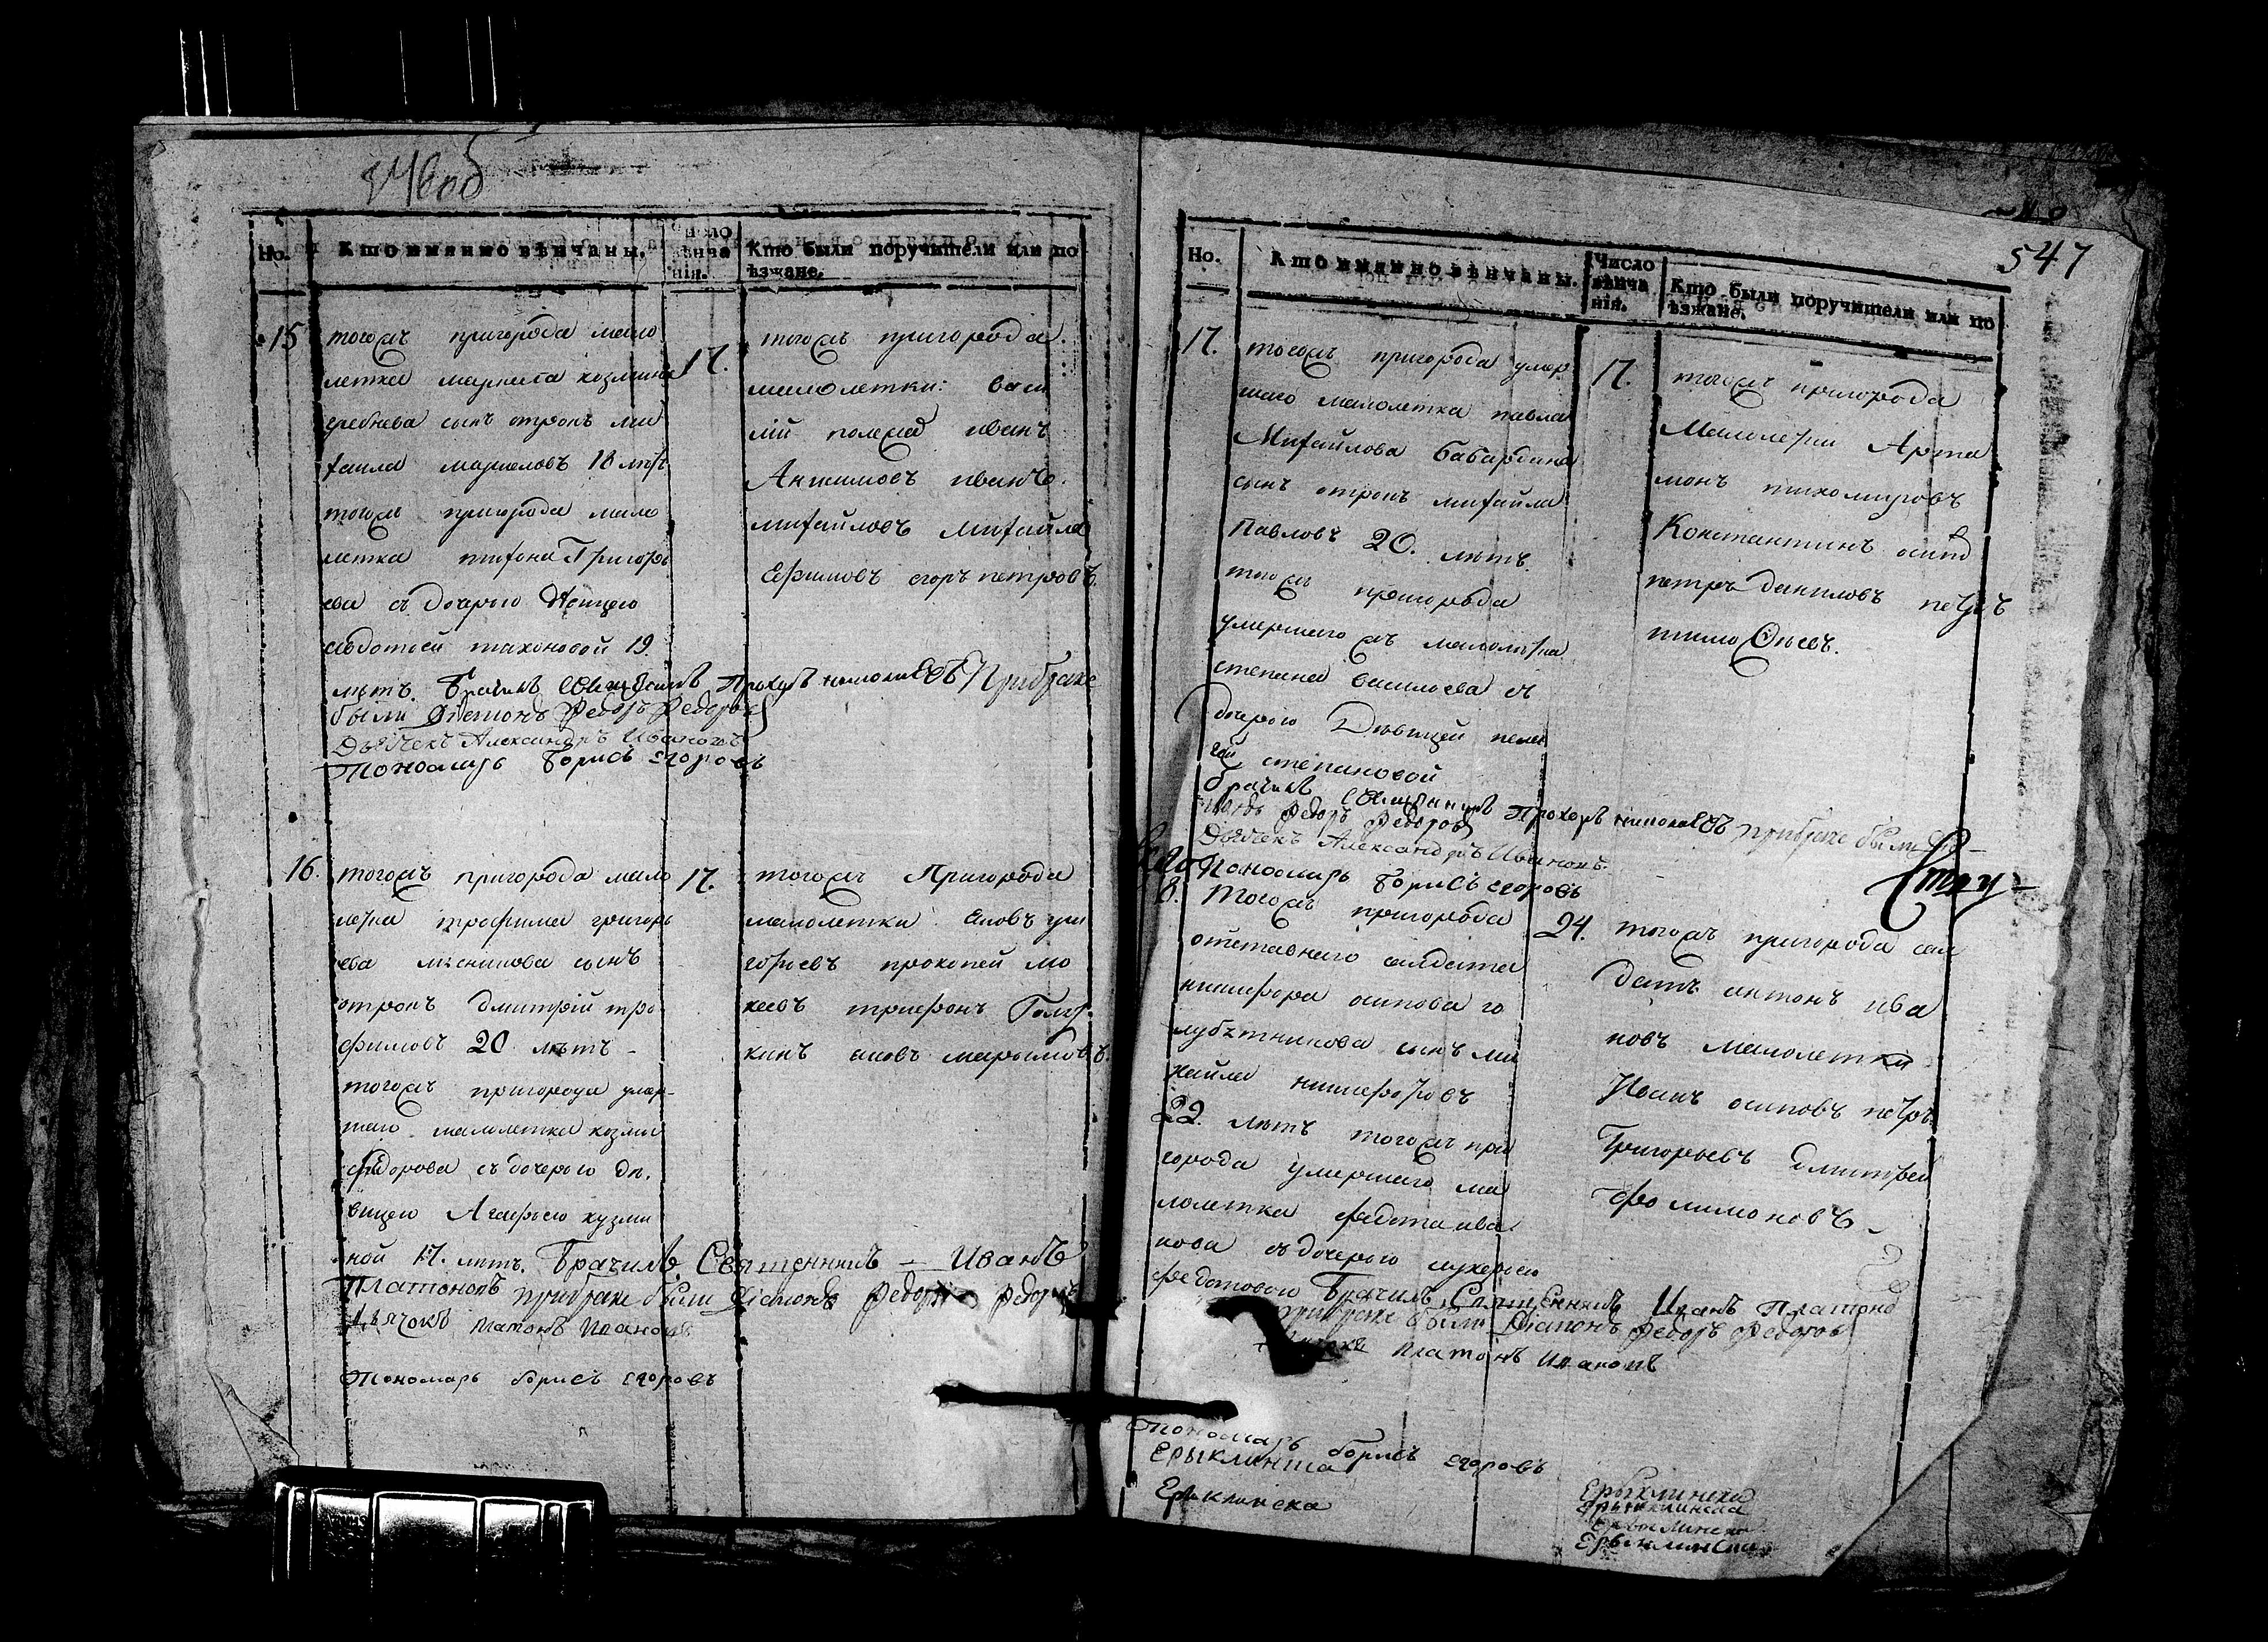 Но.
Кто именно вѣнчаны.
Число вѣнча нія.
Кто были поручители или по ѣзжане.
15
тогожъ пригорода мало
летка козмина
гребнева сынъ отрокъ ми
хаила 18 лѣтъ
тогожъ пригорода мало
летка тихона Григорь
ева съ дочерью девицею
авдотьей тихоновой 19.
лѣтъ. Брачилъ священникъ Прохоръ при браке
были Діаконъ Федоръ Федоровъ
Дьячекъ Александръ Ивановъ
Пономарь Борисъ Егоровъ
17.
тогожъ пригорода
малолетки: васи
лій иванъ
Анисимовъ иванъ
михайловъ михайла
Ефимовъ егоръ петровъ.
16.
тогожъ пригорода мало
летка трофима григорь
ева сынъ
отрокъ дмитрій тро
фимовъ 20 лѣтъ
тогожъ пригорода умер
шаго малолетка козмы
федорова съ дочерью дѣ
вицею Агафьею кузми
ной 17. лѣтъ. Брачилъ Священникъ Иванъ
Платоновъ при браке были Діаконъ Федоръ Федоровъ
Дьячокъ Платонъ Ивановъ
Пономарь борисъ егоровъ
17.
тогожъ Пригорода
малолетки Яковъ гри
горьевъ прокопей мо
кеевъ трифонъ
яковъ
547
Но.
Кто именно вѣнчаны.
Число вѣнча нія.
Кто были поручители или по ѣзжане.
17.
тогожъ пригорода умер
шаго малолетка павла
Михайлова
сынъ отрокъ михайла
Павловъ 20. лѣтъ.
тогожъ пригорода
умершаго жъ малолетка
степана васильева съ
дочерью Девицей пелаг
еи степановой
Брачилъ священникъ Прохоръ при браке были
Федоръ Федоровъ
Дьячекъ Александръ Ивановъ.
Пономарь Борисъ егоровъ
17.
тогожъ пригорода
Малолетки Арта
монъ тихомировъ
Константинъ осипо
петръ даниловъ петръ
тимофеевъ.
8.
Тогожъ пригорода
отставнаго салдата
никифора осипова го
лубятникова сынъ ми
хайла никифоровъ
22. лѣтъ тогожъ при
города умершаго ма
лолетка федота ива
нова съ дочерью лукерьею
федотовою Брачилъ Священникъ Иванъ Платоно
при браке были Діаконъ Федоръ Федоровъ
Платонъ Ивановъ
Пономарь борисъ егоровъ
24.
тогожъ пригорода сал
датъ антонъ ива
новъ малолетки
Иванъ осиповъ петръ
Григорьевъ дмитреи
филимоновъ
Ерыклинска
Ерыклинска
Ерыклинска
Ерыклинска
Ерыклинска